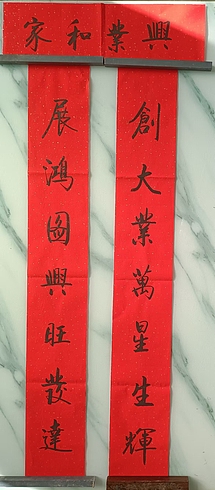 興業和家
創大業萬星生輝
展鴻圖興旺發達